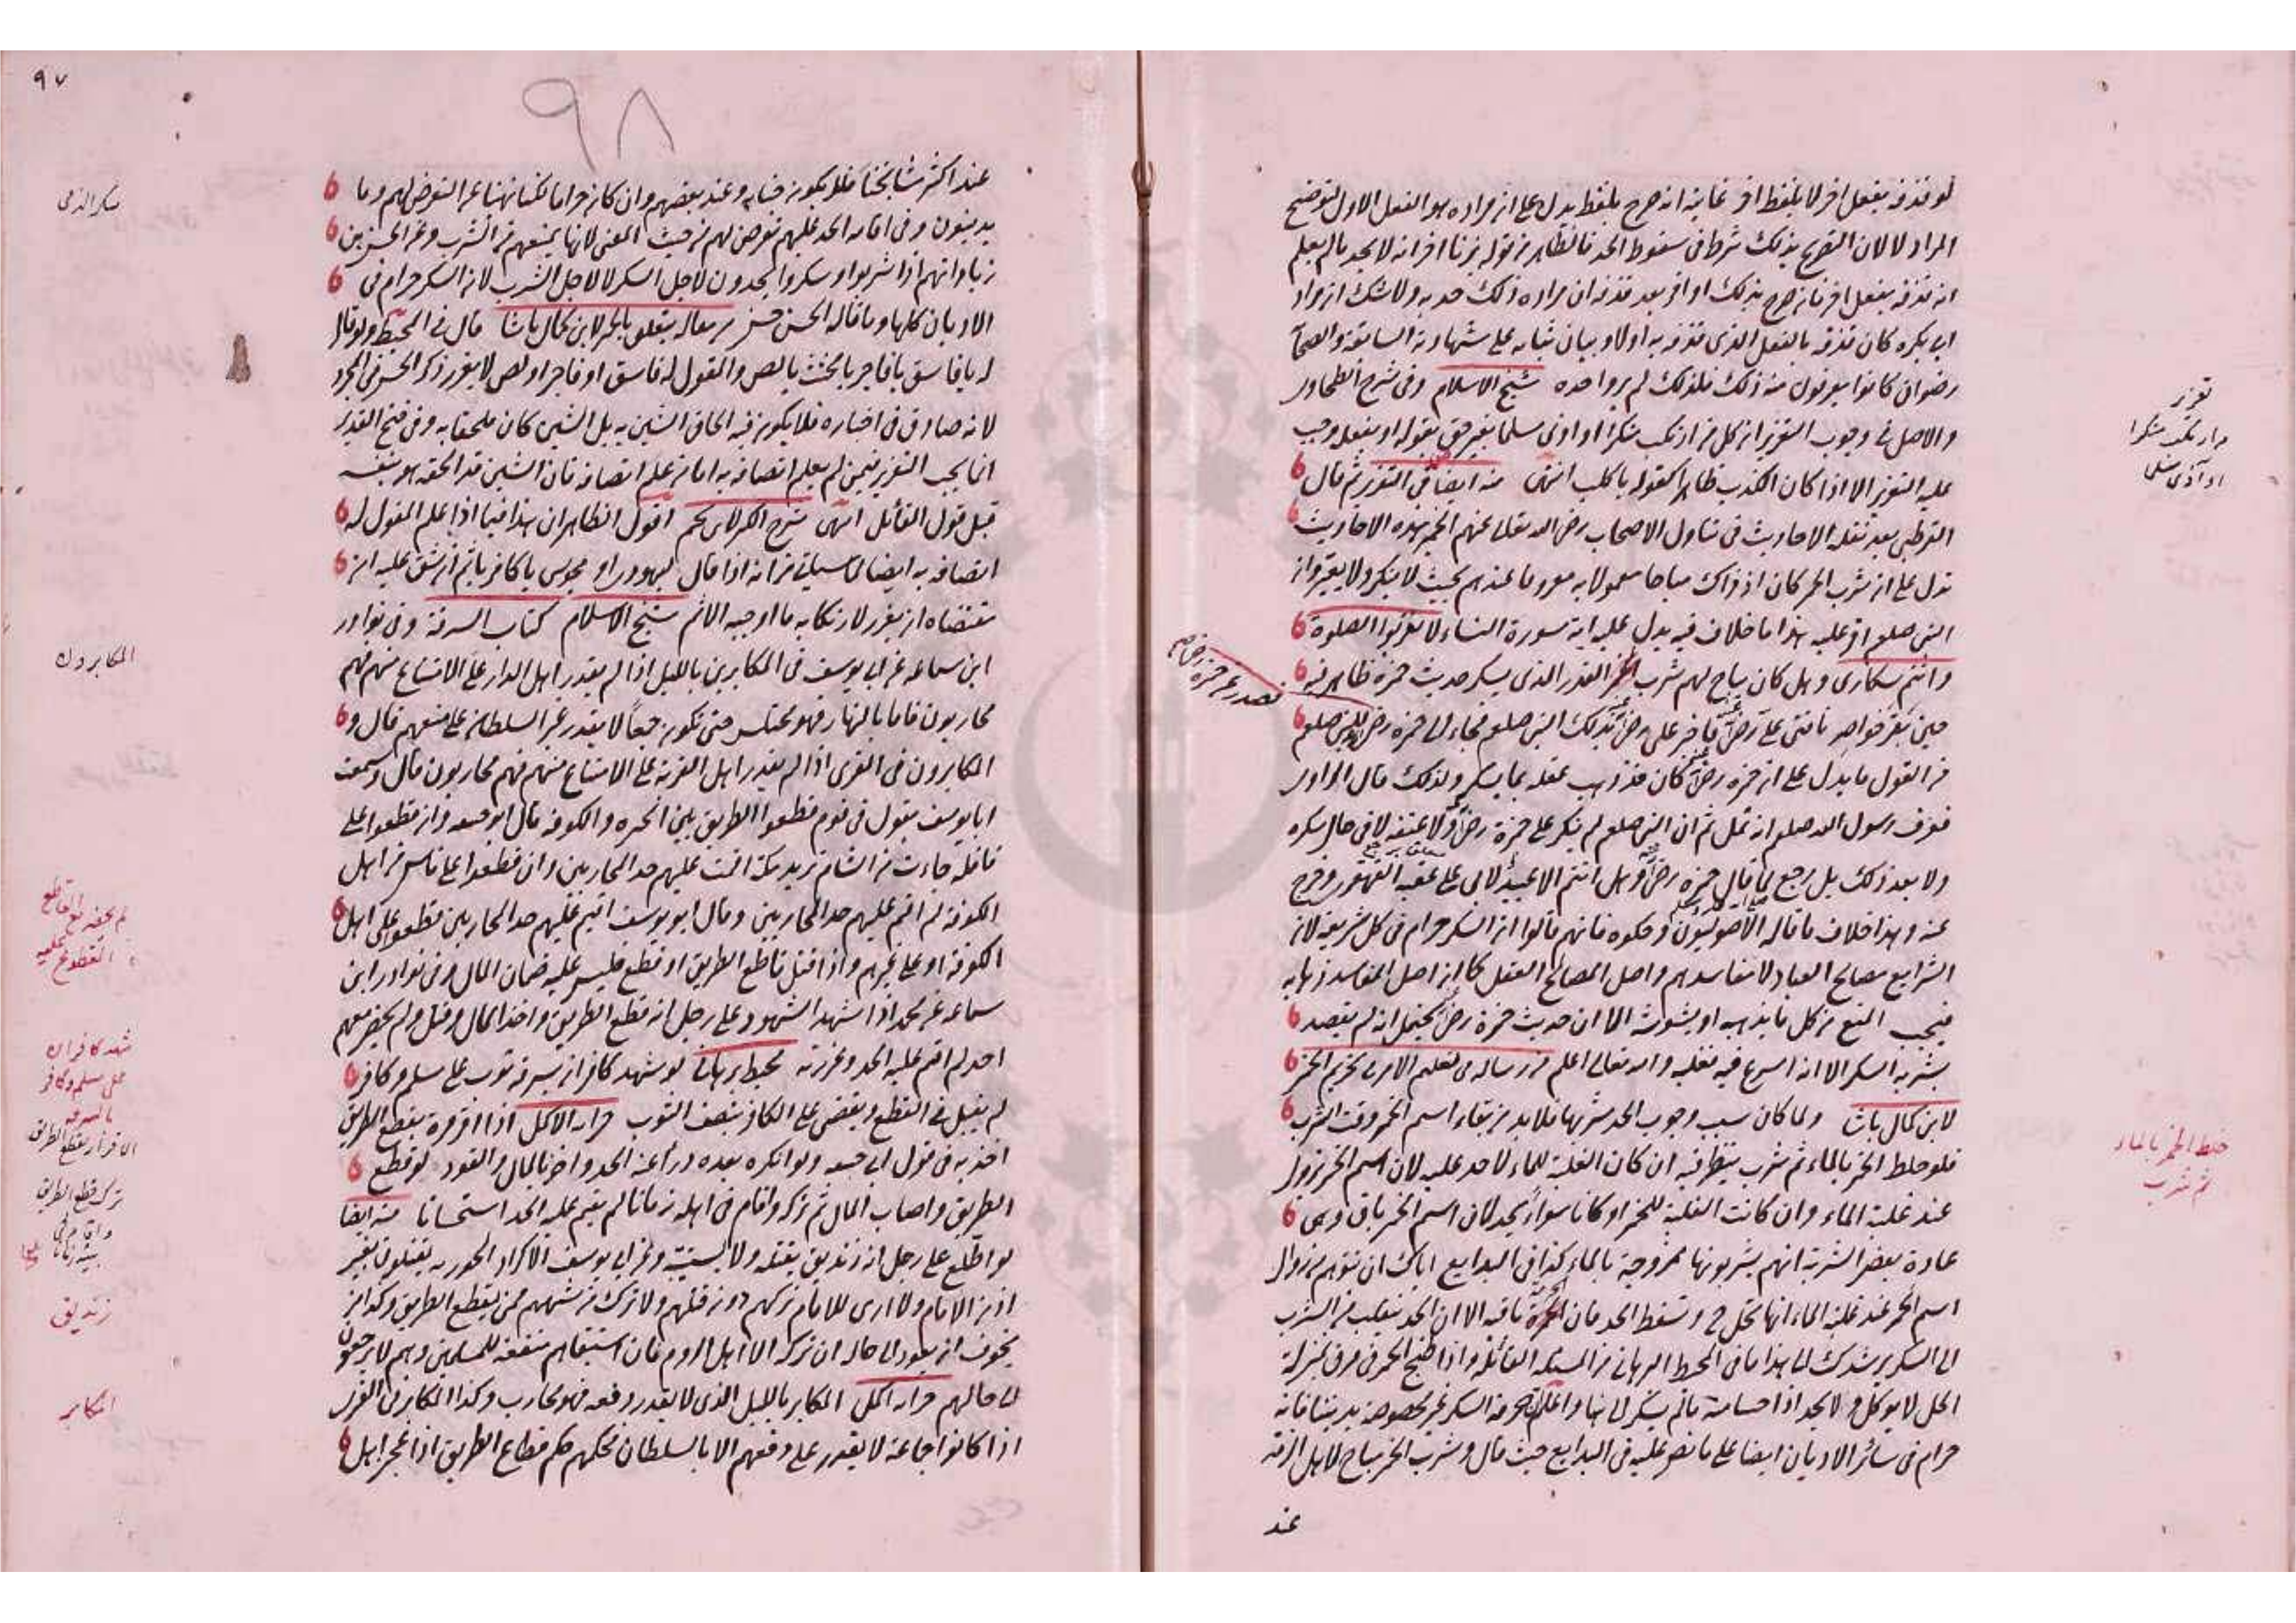 لو قذفه بفعل اخر لا بلفظ اخر غايته انه صرح بلفظ يدل على ان مراده هو الفعل الاول لتوضيح
المراد لا لان التصريح بذلك شرط في سقوط الحد فالظاهر من قوله بزنا اخر انه لا يحد ما لم يعلم
انه قذفه بفعل اخر فان صرح بذلك او اقر بعد قذفه ان مراده ذلك حد به ولا شك ان مراد
ابي بكره كان قذفه بالفعل الذي قذفه به اولا وبيان ثباته على شهادته السابقة والصحابة
رضوان كانوا يعرفون منه ذلك فلذلك لم يروا حده شيخ الاسلام وفي شرح الطحاوي
والاصل في وجوب التعزير ان كل من ارتكب منكرا او اذى مسلما بغير حق بقوله او بفعله وجب
عليه التعزير الا اذا كان الكذب ظاهرا كقوله يا كلب انتهى منه ايضا في التعزير ثم قال
القرطبي بعد نقله الاحاديث في تناول الاصحاب رضي الله تعالى عنهم الخمر بهذه الاحاديث
تدل على ان شرب الخمر كان اذ ذاك مباحا معمولا به معروفا عندهم بحيث لا ينكر ولا يغير وان
النبي صلعم اقر عليه هذا ما لا خلاف فيه يدل عليه اية سورة النساء لا تقربوا الصلوة
وانتم سكارى وهل كان يباح لهم شرب الخمر القدر الذي يسكر حديث حمزة ظاهر فيه
حين بقر خواصر ناقتي علي رض فاخبر علي رض بذلك النبي صلعم فجاء الى حمزه رض للنبي صلعم
من القول ما يدل على ان حمزه رض كان قد ذهب عقله بما يسكر ولذلك قال الراوي
فعرف رسول الله صلعم انه ثمل ثم ان النبي صلعم لم ينكر على حمزة رض ولا عنفه لا في حال سكره
ولا بعد ذلك بل رجع لما قال حمزه رض وهل انتم الا عبيد لابي على عقبه القهقرى وخرج
عنه وهذا خلاف ما قاله الاصوليون وحكوه فانهم قالوا ان السكر حرام في كل شريعة لان
الشرايع مصالح العباد لا مفاسدهم واصل المصالح العقل كما ان اصل المفاسد ذهابه
فيجب المنع من كل ما يذهبه او يشوشه الا ان حديث حمزة رض يحتمل انه لم يقصد
بشربه السكر الا انه اسرع فيه فغلبه والله تعالى اعلم من رسالة في تعليم الامر في تحريم الخمر
لابن كمال باشا ولما كان سبب وجوب الحد شربها فلا بد من بقاء اسم الخمر وقت الشرب
فلو خلط الخمر بالماء ثم شرب ينظر فيه ان كان الغلبة للماء لا حد عليه لان اسم الخمر يزول
عند غلبة الماء وان كانت الغلبة للخمر او كانا سواء يحد لان اسم الخمر باق وهي
عادة بعض الشربة انهم يشربونها ممزوجة بالماء كذا في البدايع اياك ان تتوهم من زوال
اسم الخمر عند غلبة الماء انها تحل ح وتسقط الحد فان الحرمة باقيه الا ان الحد ينقلب من الشرب
الى السكر يرشدك الى هذا ما في المحيط البرهاني من المسئلة القائلة واذا طبخ الخمر في مرق بمنزلة
الخل لا يؤكل ولا يحد اذا حسا منه ما لم يسكر الى هنا واعلم ان حرمة السكر غير مخصوصة بديننا فانه
حرام في سائر الاديان ايضا على ما نص عليه في البدايع حيث قال وشرب الخمر مباح لاهل الذمة
عند
تعزير
من ارتكب منكرا
او اذى مسلما
خلط الخمر بالماء
ثم شرب
٩٧
٩٨
عند اكثر مشايخنا فلا يكون جناية وعند بعضهم وان كان حراما لكننا نهينا عن التعرض لهم وما
يدينون وفي اقامة الحد عليهم تعرض لهم من حيث المعنى لانها تمنعهم من الشرب وعن الحسن بن
زياد انهم اذا شربوا وسكروا يحدون لاجل السكر لا لاجل الشرب لان السكر حرام في
الاديان كلها وما قاله الحسن حسن من مقالة يتعلق بالخمر لابن كمال باشا قال في المحيط ولو قال
له يا فاسق يا فاجر يا مخنث يا لص والمقول له فاسق او فاجر او لص لا يعزر ذكر الحسن في المجرد
لانه صادق في اخباره فلا يكون فيه الحاق الشين به بل الشين كان ملحقا به وفي فتح القدير
انما يجب التعزير فيمن لم يعلم اتصافه به اما من علم اتصافه فان الشين قد الحقه هو بنفسه
قبل قول القائل انتهى شرح الكنز لابن نجيم اقول الظاهر ان هذا فيما اذا علم المقول له
اتصافه به ايضا لما سيأتي من انه اذا قال ليهودي او مجوسي يا كافر ياثم ان شق عليه ان
مقتضاه ان يعزر لارتكابه ما اوجبه الاثم شيخ الاسلام كتاب السرقة وفي نوادر
ابن سماعه عن ابي يوسف في المكابرين بالليل اذا لم يقدر اهل الدار على الامتناع منهم فهم
محاربون فاما بالنهار فهو مختلس حتى تكون جمعا لا يقدر غير السلطان على منعهم قال و
المكابرون في القرى اذا لم يقدر اهل القرية على الامتناع منهم فهم محاربون قال وسمعت
ابا يوسف يقول في قوم قطعوا الطريق بين الحيره والكوفه قال ابو حنيفه وان قطعوا على
قافلة جاءت من الشام تريد مكة اقمت عليهم حد المحاربين وان قطعوا على ناس من اهل
الكوفة لم اقم عليهم حد المحاربين وقال ابو يوسف اقيم عليهم حد المحاربين قطعوا على اهل
الكوفة او على غيرهم واذا قتل قاطع الطريق او قطع فليس عليه ضمان المال وفي نوادر ابن
سماعه عن محمد اذا شهد الشهود على رجل انه قطع الطريق واخذ المال وقتل ولم يحضر معهم
احد لم اقم عليه الحد وعزرته محيط برهاني لو شهد كافران بسرقة ثوب على مسلم وكافر
لم يقبل في القطع ويقضي على الكافر بنصف الثوب خزانه الاكمل اذا اقر مرة بقطع الطريق
اخذ به في قول ابي حنيفه ولو انكره بعده درأ عنه الحد واخذ بالمال والقود لو قطع
الطريق واصاب المال ثم تركه واقام في اهله زمانا لم يقم عليه الحد استحسانا منه ايضا
لو اطلع على رجل انه زنديق يقتله ولا يستتيبه وعن ابي يوسف الاكراد الحوريه يقتلون بغير
اذن الامام ولا ارى للامام تركهم دون قتلهم ولا ترك من شبههم ممن يقطع الطريق وكذا من
يخوف ان يعود الى حاله ان تركه الا اهل الروم فان استبقاهم منفعة للمسلمين وهم لا يرجعون
الى حالهم خزانه اكمل المكابر بالليل الذي لا يقدر دفعه فهو محارب وكذا المكابر في القرى
اذا كانوا جماعة لا يقدر على دفعهم الا بالسلطان فحكمهم حكم قطاع الطريق اذا عجز اهل
سكر الذمي
المكابرون
شهد كافران
على مسلم وكافر
بالسرقه
الاقرار بقطع الطريق
ترك قطع الطريق
واقام في
زنديق
المكابر